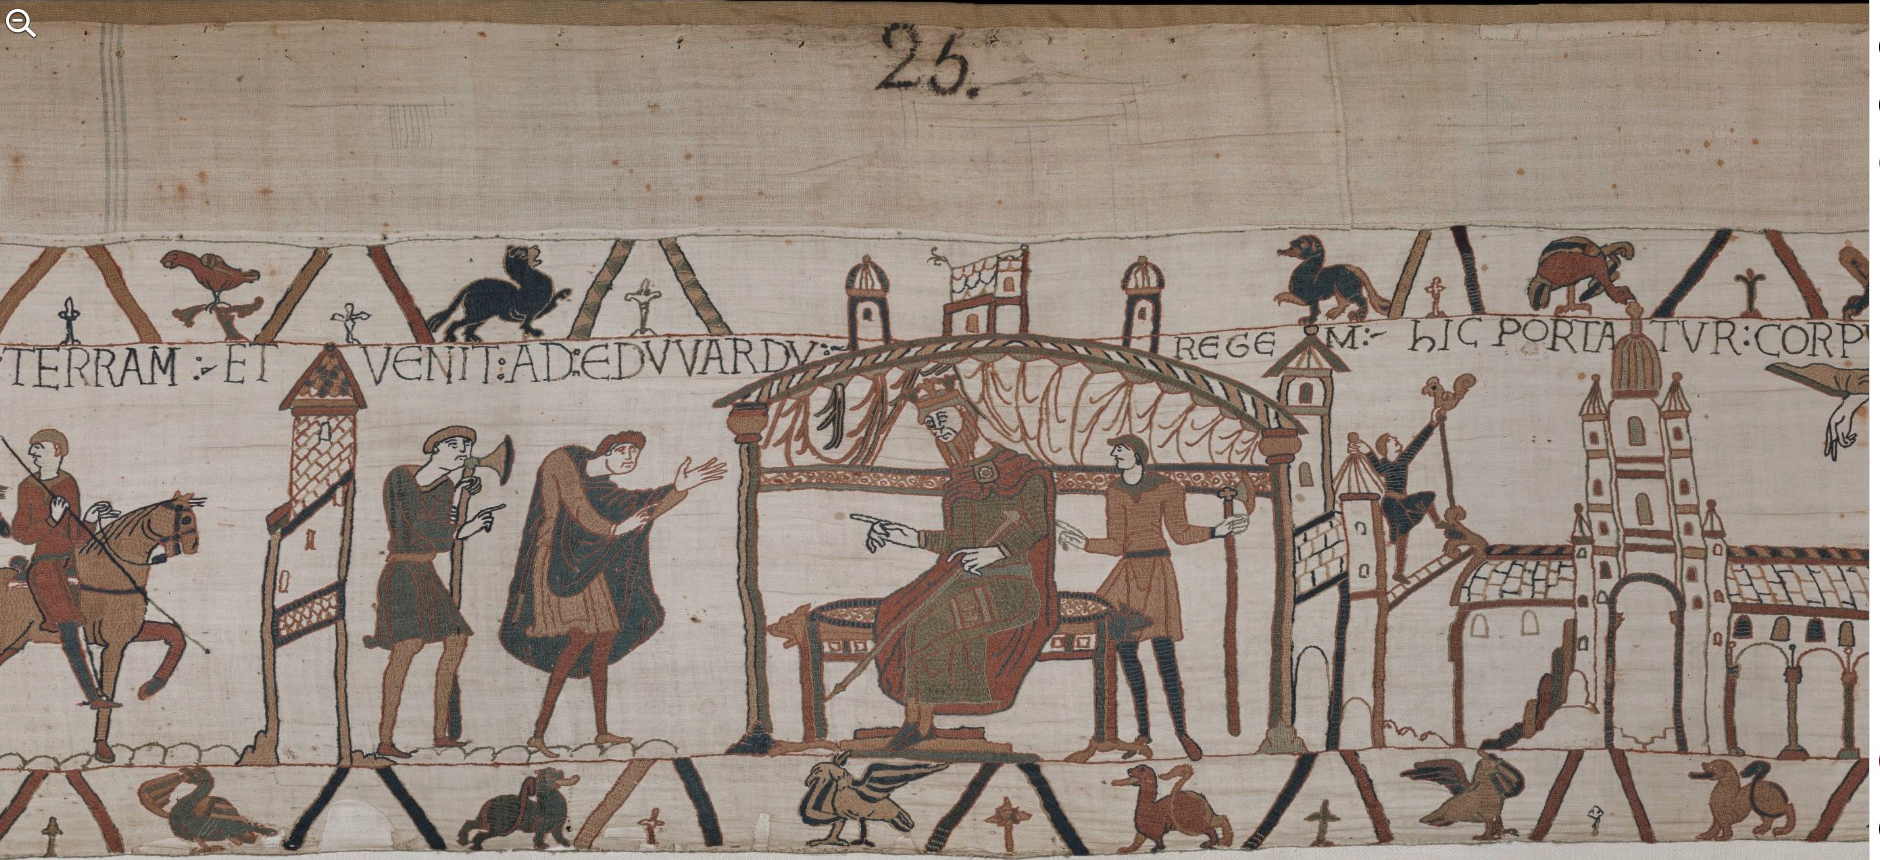 25.
:TERRAM :- ET VENIT : AD : EDVVARDV :- REGE M :- hIC PORTA TVR : CORPV